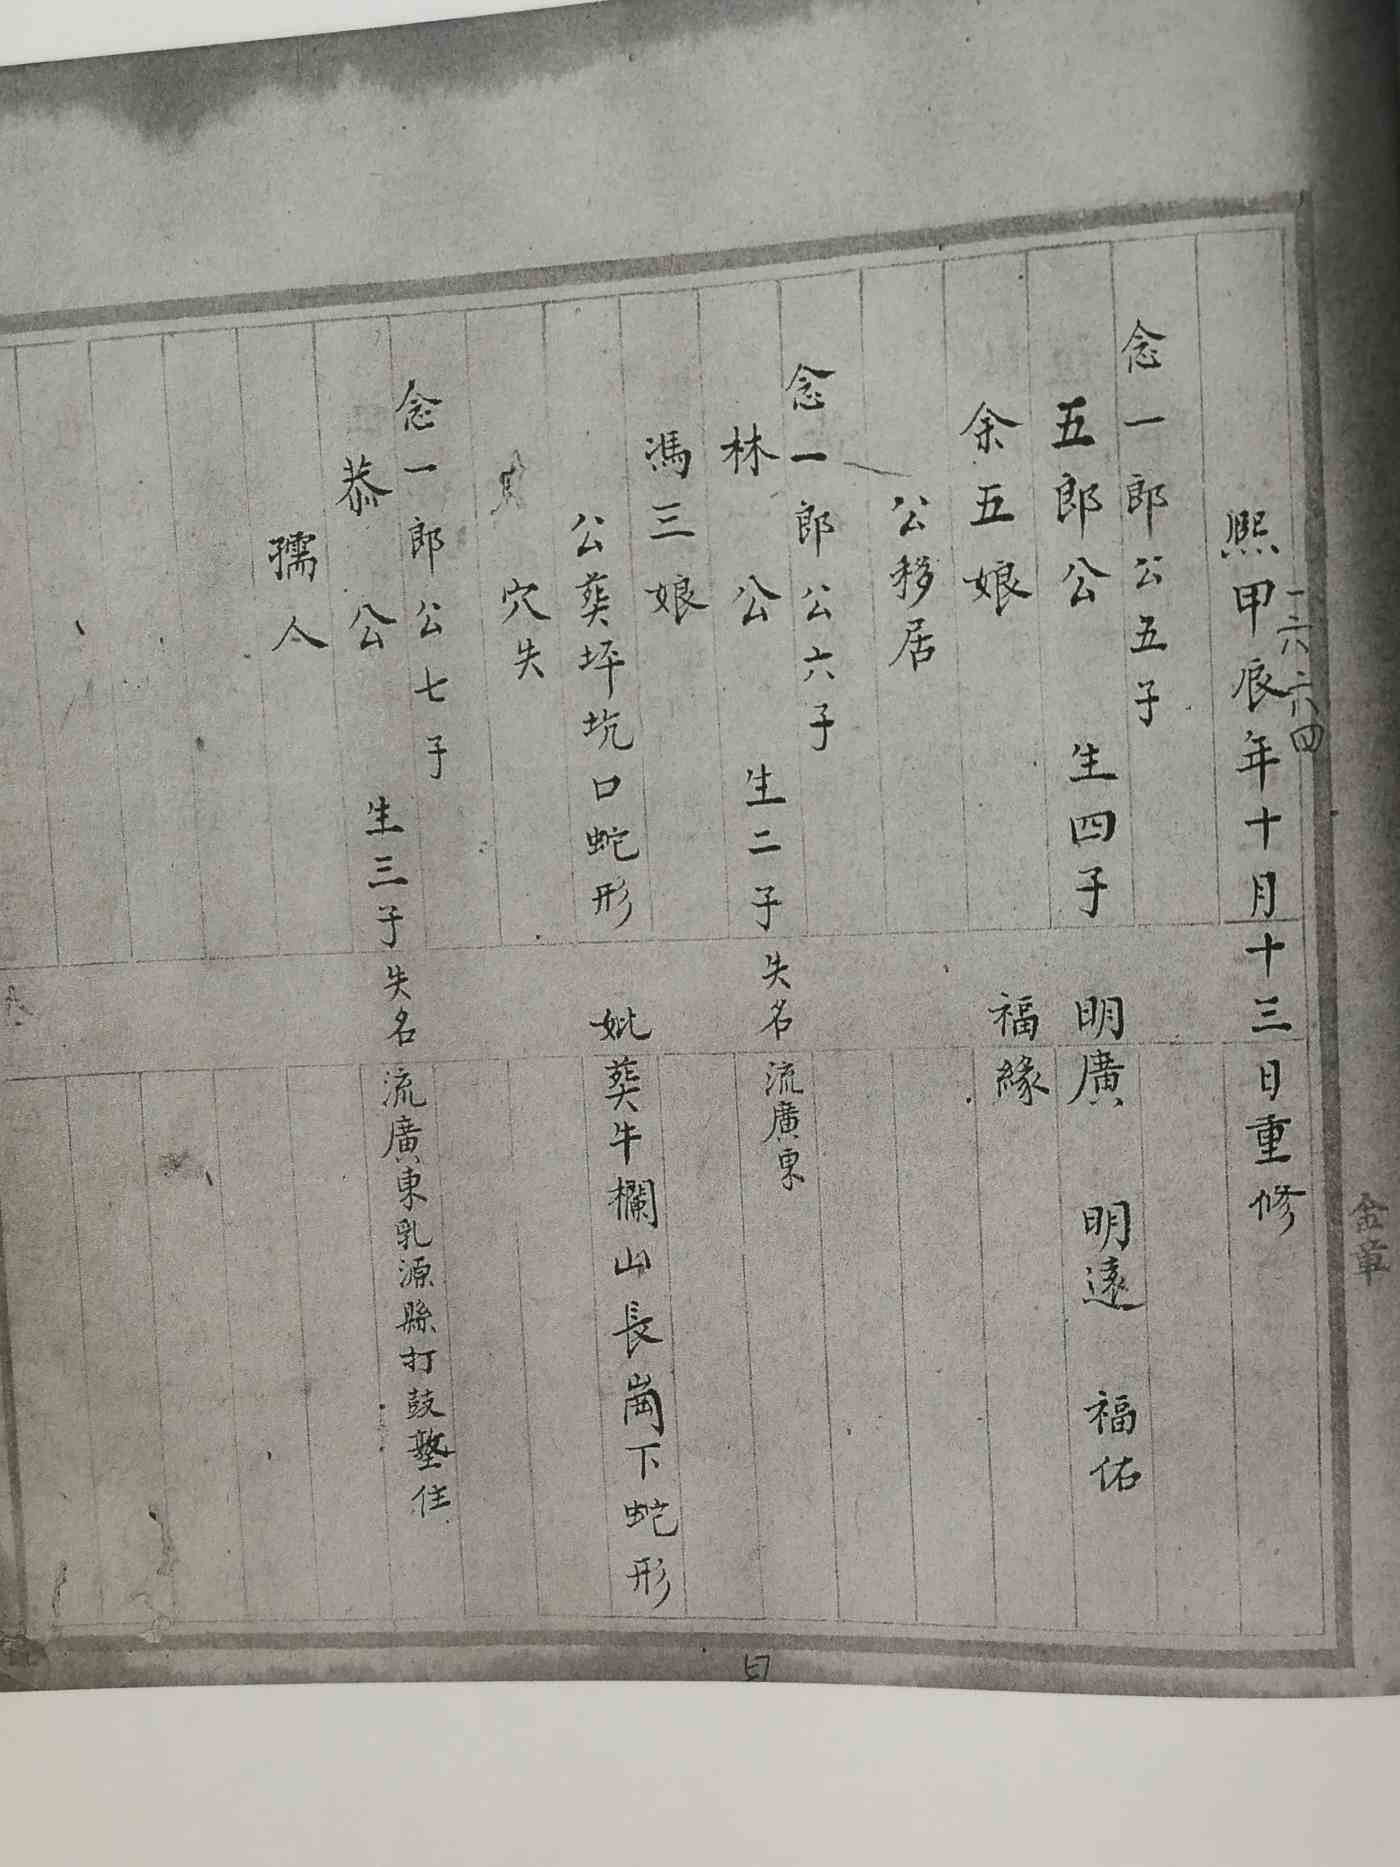 金章
一六六四
熙甲辰年十月十三日重修
念一郎公五子
五郎公 生四子 明廣 明遠 福佑
余五娘 福緣
公移居
念一郎公六子
林公 生二子 失名 流廣東
馮三娘
公葬坪坑口蛇形 妣葬牛欄山長崗下蛇形
穴失
念一郎公七子
恭公 生三子 失名 流廣東乳源縣打鼓整住
孺人